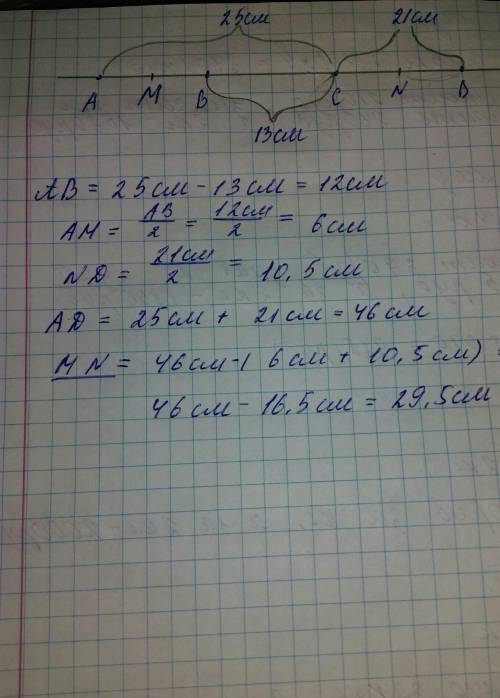 25см 21см
A M B C N D
13см
AB = 25см - 13см = 12см
AM = AB/2 = 12см/2 = 6см
ND = 21см/2 = 10,5см
AD = 25см + 21см = 46см
MN = 46см-( 6см + 10,5см) =
46см - 16,5см = 29,5см